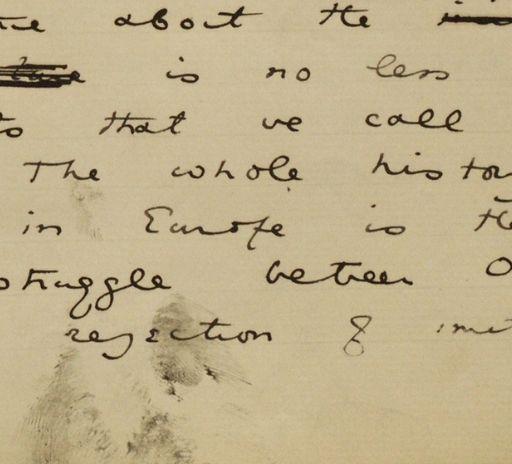 about the
is no less
that we call
The whole histor
in Europe is the
struggle between O
rejection & imit